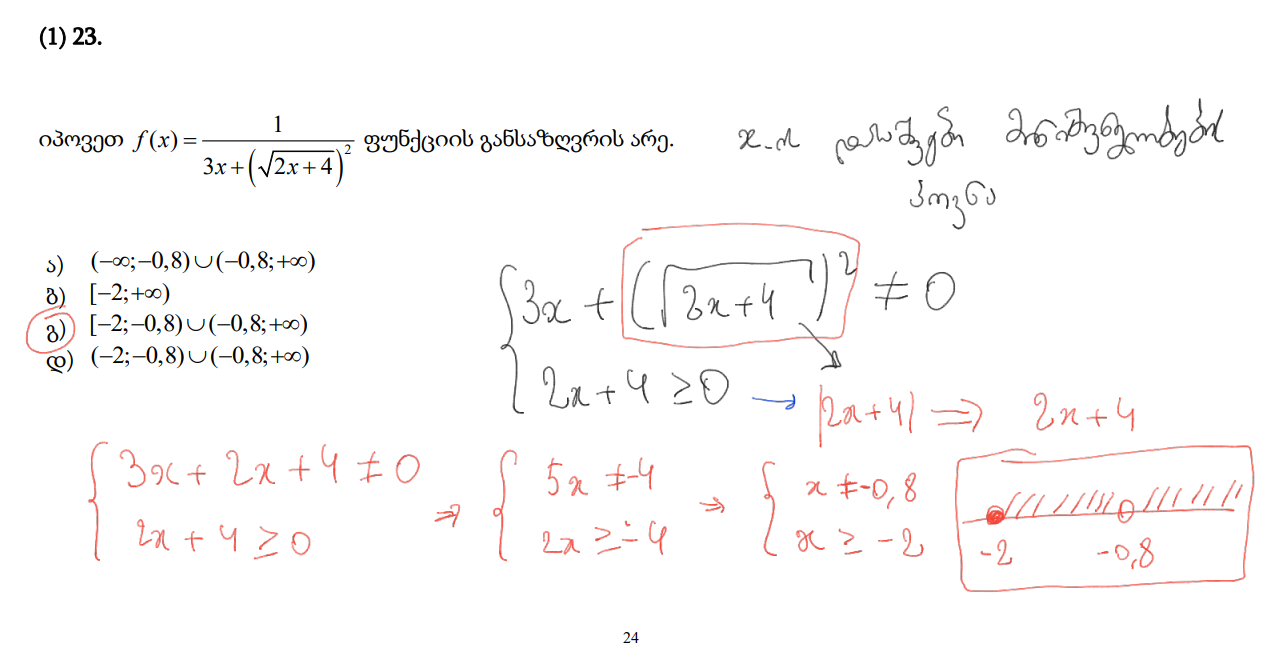 (1) 23.
იპოვეთ f(x) = 1 / (3x + (√(2x+4))²) ფუნქციის განსაზღვრის არე.
x-ის დასაშვები მნიშვნელობების
პოვნა
ა) (−∞;−0,8)∪(−0,8;+∞)
ბ) [−2;+∞)
გ) [−2;−0,8)∪(−0,8;+∞)
დ) (−2;−0,8)∪(−0,8;+∞)
{ 3x + (√(2x+4))² ≠ 0
2x+4 ≥ 0 → |2x+4| ⇒ 2x+4
{ 3x + 2x + 4 ≠ 0 ⇒ { 5x ≠ -4 ⇒ { x ≠ -0,8
2x + 4 ≥ 0 2x ≥ -4 x ≥ -2
-2 -0,8
24